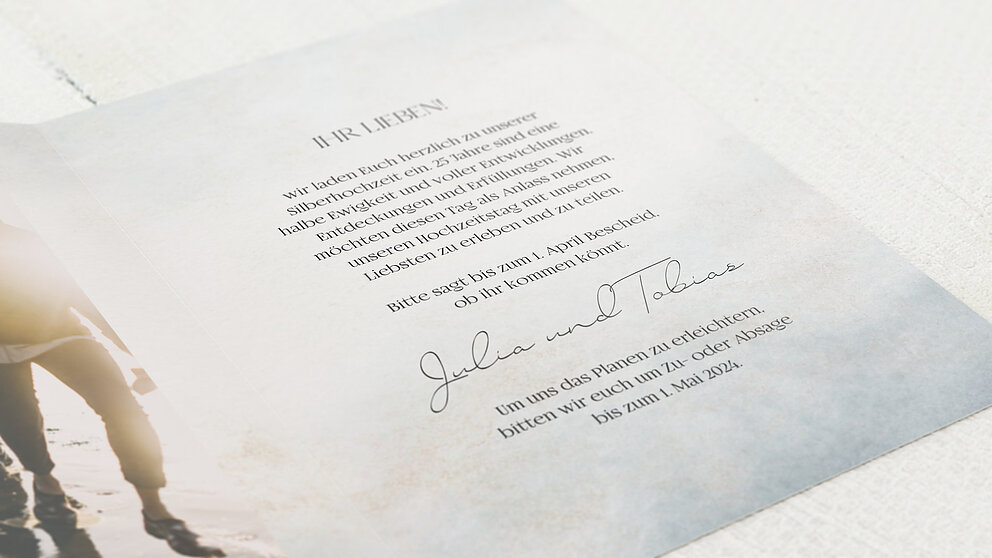 IHR LIEBEN!
wir laden Euch herzlich zu unserer
Silberhochzeit ein. 25 Jahre sind eine
halbe Ewigkeit und voller Entwicklungen,
Entdeckungen und Erfüllungen. Wir
möchten diesen Tag als Anlass nehmen,
unseren Hochzeitstag mit unseren
Liebsten zu erleben und zu teilen.
Bitte sagt bis zum 1. April Bescheid,
ob ihr kommen könnt.
Julia und Tobias
Um uns das Planen zu erleichtern,
bitten wir euch um Zu- oder Absage
bis zum 1. Mai 2024.